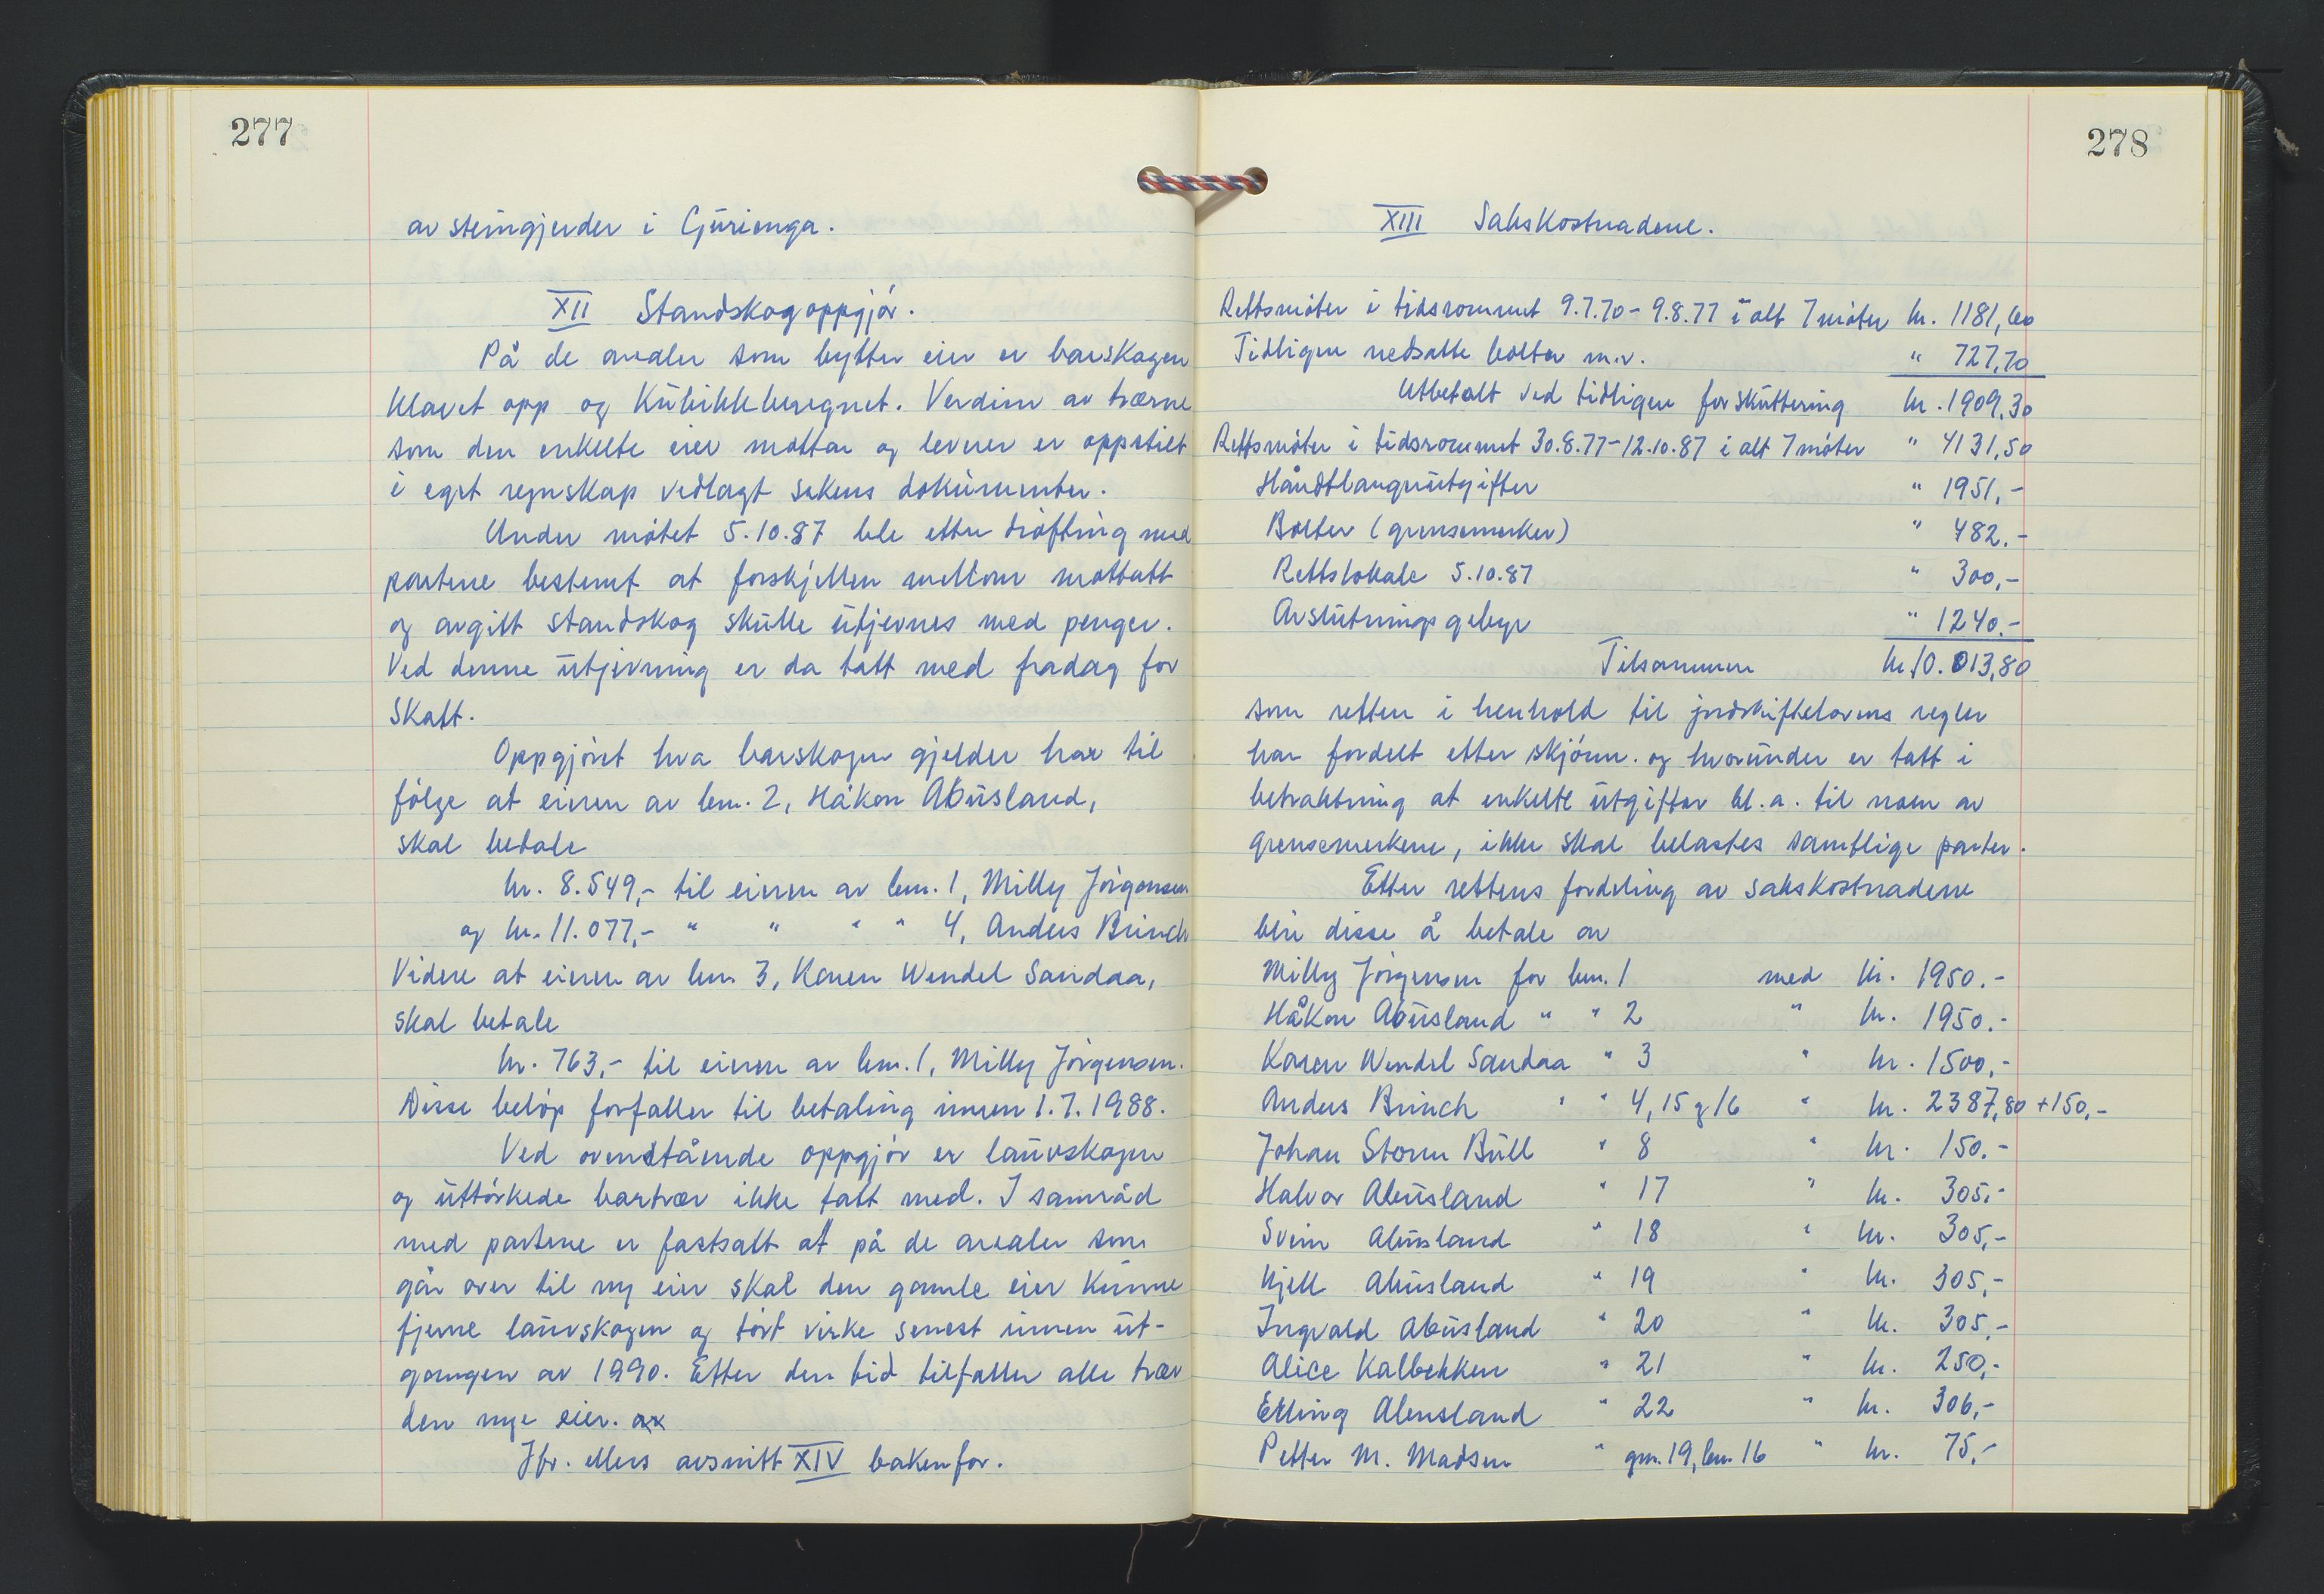 277
av steingjerder i Gurienga.
XII Standskogoppgjør.
På de arealer som bytter eier er barskogen
klavet opp og kubikkberegnet. Verdien av trærne
som den enkelte eier mottar og leverer er oppstilt
i eget regnskap vedlagt sakens dokumenter.
Under møtet 5.10.87 ble etter drøfting med
partene bestemt at forskjellen mellom mottatt
og avgitt standskog skulle utjevnes med penger.
Ved denne utjevning er da tatt med fradag for
skatt.
Oppgjøret hva barskogen gjelder har til
følge at eieren av bnr. 2, Håkon Abusland,
skal betale
kr. 8.549,- til eieren av bnr. 1, Milly Jørgensen
og kr. 11.077,- " " " " 4, Anders Brinch
Videre at eieren av bnr. 3, Karen Wendel Sandaa,
skal betale
kr. 763,- til eieren av bnr. 1, Milly Jørgensen.
Disse beløp forfaller til betaling innen 1.7.1988.
Ved ovenstående oppgjør er lauvskogen
og uttørkede bartrær ikke tatt med. I samråd
med partene er fastsatt at på de arealer som
går over til ny eier skal den gamle eier kunne
fjerne lauvskogen og tørt virke senest innen ut-
gangen av 1990. Etter den tid tilfaller alle trær
den nye eier.
Jfr. ellers avsnitt XIV bakenfor.
278
XIII Sakskostnadene.
Rettsmøter i tidsrommet 9.7.70 - 9.8.77 i alt 7 møter kr. 1181,60
Tidligere nedsatte bolter m.v. " 727,70
Utbetalt ved tidligere forskuttering kr. 1909,30
Rettsmøter i tidsrommet 30.8.77 - 12.10.87 i alt 7 møter " 4131,50
Håndtlangerutgifter " 1951,-
Bolter (grensemerker) " 482.-
Rettslokale 5.10.87 " 300,-
Avslutningsgebyr " 1240.-
Tilsammen kr. 10.013,80
som retten i henhold til jordskiftelovens regler
har fordelt etter skjønn. og hvorunder er tatt i
betraktning at enkelte utgifter bl.a. til noen av
grensemerkene, ikke skal belastes samtlige parter.
Etter rettens fordeling av sakskostnadene
blir disse å betale av
Milly Jørgensen for bnr. 1 med kr. 1950.-
Håkon Abusland " " 2 " kr. 1950.-
Karen Wendel Sandaa " 3 " kr. 1500,-
Anders Brinch " " 4, 15 og 16 " kr. 2387,80 + 150,-
Johan Storm Bull " 8 " kr. 150.-
Halvor Abusland " 17 " kr. 305.-
Svein Abusland " 18 " kr. 305,-
Kjell Abusland " 19 " kr. 305,-
Ingvald Abusland " 20 " kr. 305,-
Alice Kalbekken " 21 " kr. 250,-
Erling Abusland " 22 " kr. 306,-
Petter M. Madsen " gnr. 19, bnr. 16 " kr. 75,-